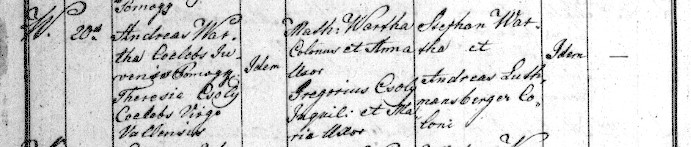 Pomogy
W. 20a Andreas War-
tha Coelebs Ju-
venis Pomogy.
Theresia Csoly
Coelebs Virgo
Vallensis
Idem
Math: Wartha
Colonus et Anna
Uxor
Gregorius Csoly
Inquili et Ma
ria Uxor
Stephan War-
tha et
Andreas Lush
mansberger Co-
loni
Idem
—